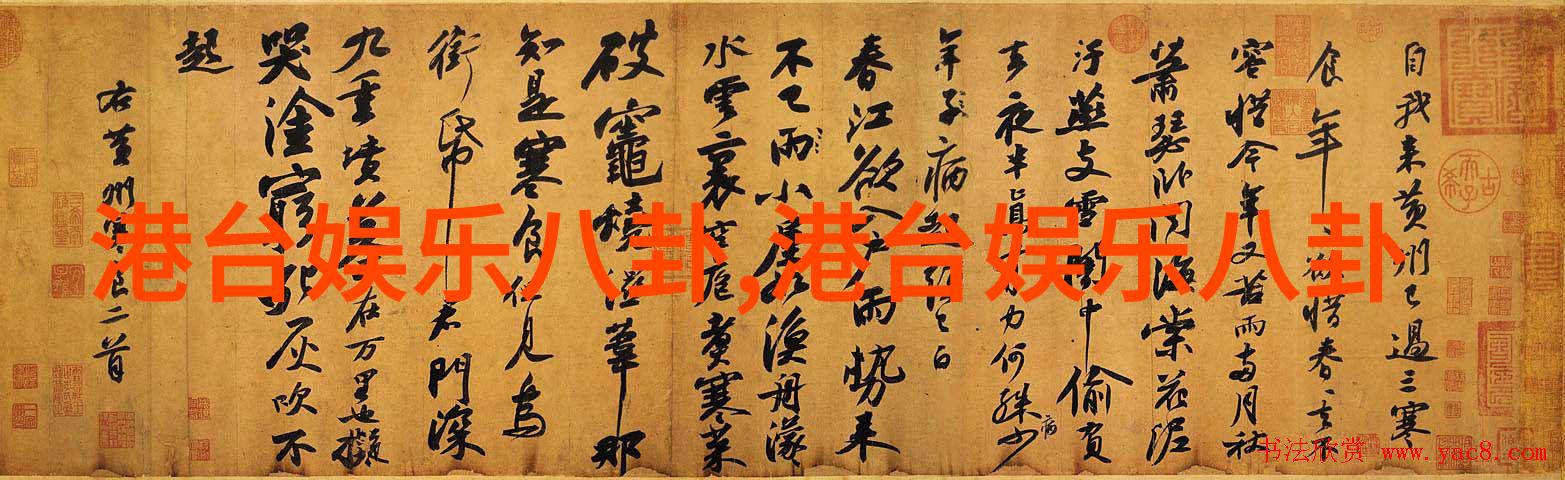 自我来黄州已過三寒
食年〻欲惜春〻去不
容惜今年又苦雨两月秋
蕭瑟卧聞海棠花泥
汙燕支雪闇中偷負
去夜半真有力何殊少
年子病起頭已白
春江欲入户雨勢来
不已雨小屋如漁舟濛
水雲裏空庖煑寒菜
破竈燒濕葦那
知是寒食但見烏
銜帋君門深
九重墳墓在万里也擬
哭塗窮死灰吹不
起
右黄州寒食二首
港台娱乐八卦,港台娱乐八卦
书法欣赏 www.yac8.com